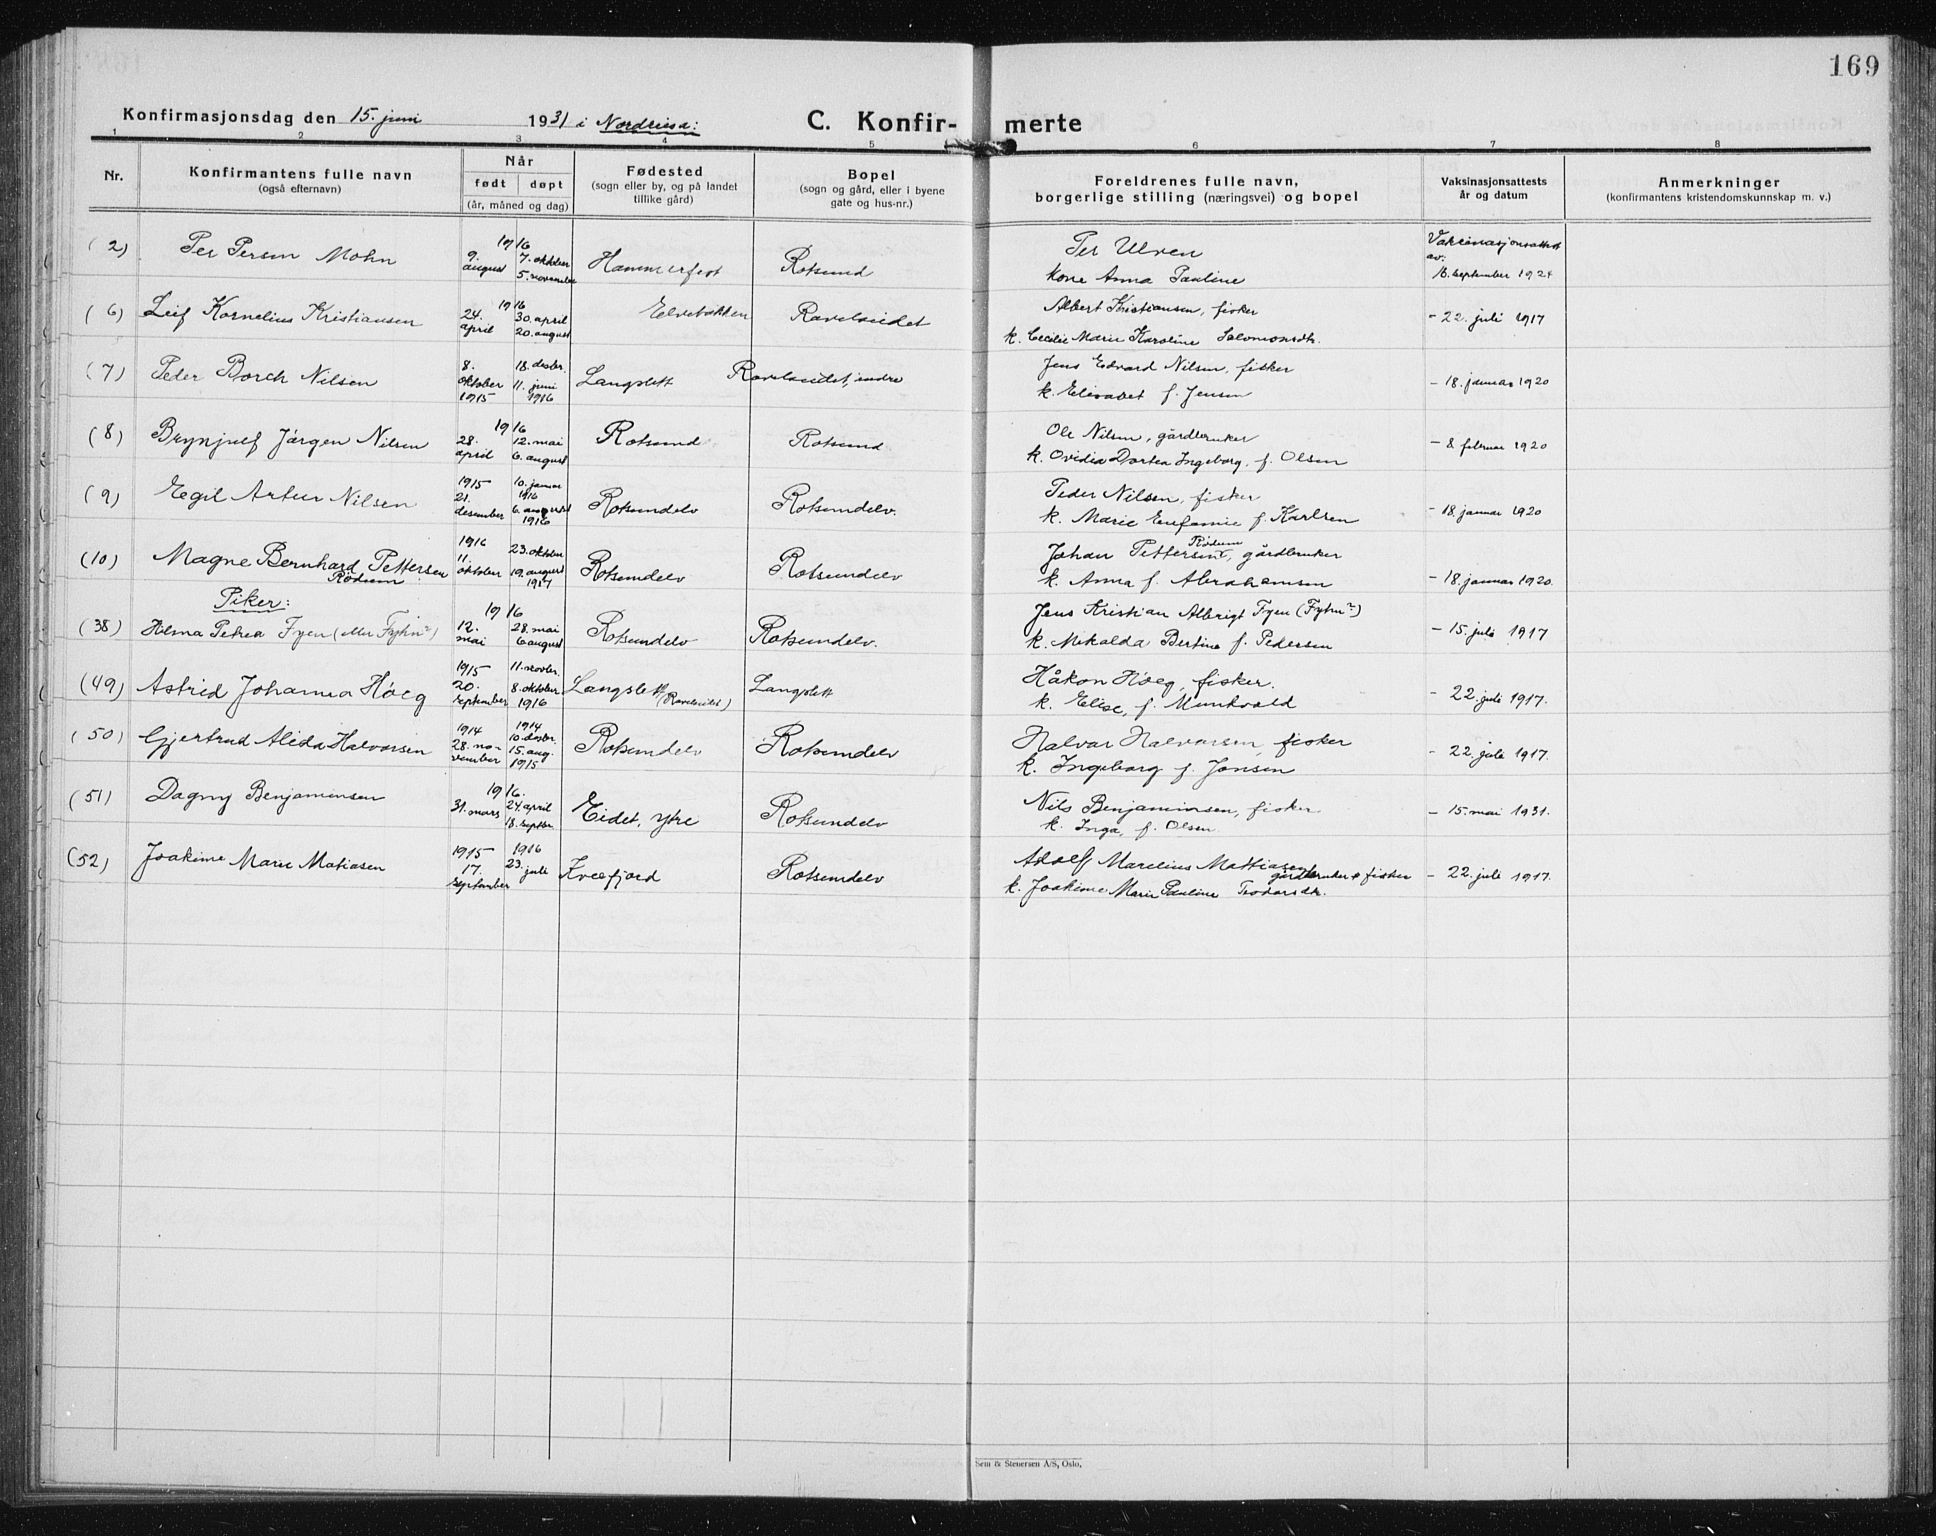 169
Konfirmasjonsdag den 15. juni 1931 i Nordreisa:
C. Konfir- merte
1 2 3 4 5 6 7 8
Nr.
Konfirmantens fulle navn
(også efternavn)
Når
født døpt
(år, måned og dag)
Fødested
(sogn eller by, og på landet
tillike gård)
Bopel
(sogn og gård, eller i byene
gate og hus-nr.)
Foreldrenes fulle navn,
borgerlige stilling (næringsvei) og bopel
Vaksinasjonsattests
år og datum
Anmerkninger
(konfirmantens kristendomskunnskap m. v.)
(2) Per Persen Mohn
1916
9. august
7. oktober
5. november
Hammerfest
Rotsund
Per Ulven
kone Anna Pauline
Vaksinasjonsattest
av:
18. september 1924
(6) Leif Kornelius Kristiansen
1916
24. april
30. april
20. august
Elvebakken
Raveleidet
Albert Kristiansen, fisker
k. Cecilie Marie Karoline Salomonsdtr.
- 22. juli 1917
(7) Peder Borch Nilsen
8. oktober 1915
18. desbr.
11. juni 1916
Langslett
Raveleidet, indre
Jens Edvard Nilsen, fisker
k. Elisabet f. Jensen
- 18. januar 1920
(8) Brynjulf Jørgen Nilsen
1916
28. april
12. mai
6. august
Rotsund
Rotsund
Ole Nilsen, gårdbruker
k. Ovidia Dortea Ingeborg, f. Olsen
- 8 februar 1920
(9) Egil Artur Nilsen
1915
21. desember
10. januar 1916
6. august 1916
Rotsundelv
Rotsundelv.
Peder Nilsen, fisker
k. Marie Eufamie f. Karlsen
- 18. januar 1920
(10) Magne Bernhard Pettersen
Rödum
1916
11. oktober
23. oktober
19. august 1917
Rotsundelv
Rotsundelv
Rödum
Johan Pettersen, gårdbruker
k. Anna f. Abrahamsen
- 18. januar 1920.
Piker:
(38) Helma Petrea Fyen (eller Fyhn?)
1916
12. mai
28. mai
6 august
Rotsundelv
Rotsundelv.
Jens Kristian Albrigt Fyen (Fyhn?)
k. Mekalda Bertine f. Pedersen
- 15. juli 1917
(49) Astrid Johanna Høeg
1915
20. september
11. novbr.
8. oktober 1916
Langslett (Raveleidet)
Langslett
Håkon Høeg, fisker.
k. Elise, f. Munkvold
- 22. juli 1917.
(50) Gjertrud Alida Halvarsen
1914
28. november
1914
10. desbr.
15. aug. 1915
Rotsundelv
Rotsundelv
Halvar Halvarsen fisker
k. Ingeborg f. Jansen
- 22. juli 1917.
(51) Dagny Benjaminsen
1916.
31. mars
24. april
18. septbr.
Eidet, ytre
Rotsundelv
Nils Benjaminsen, fisker
k. Inga, f. Olsen.
- 15. mai 1931.
(52) Joakime Marie Matiasen
1915
17. september
1916
23. juli
Rotsundelv
Adolf Marelius Mattiasen
gårdbruker & fisker
k. Joakime Marie Pauline Teodorsdtr.
- 22. juli 1917.
Sem & Stenersen A/S, Oslo.